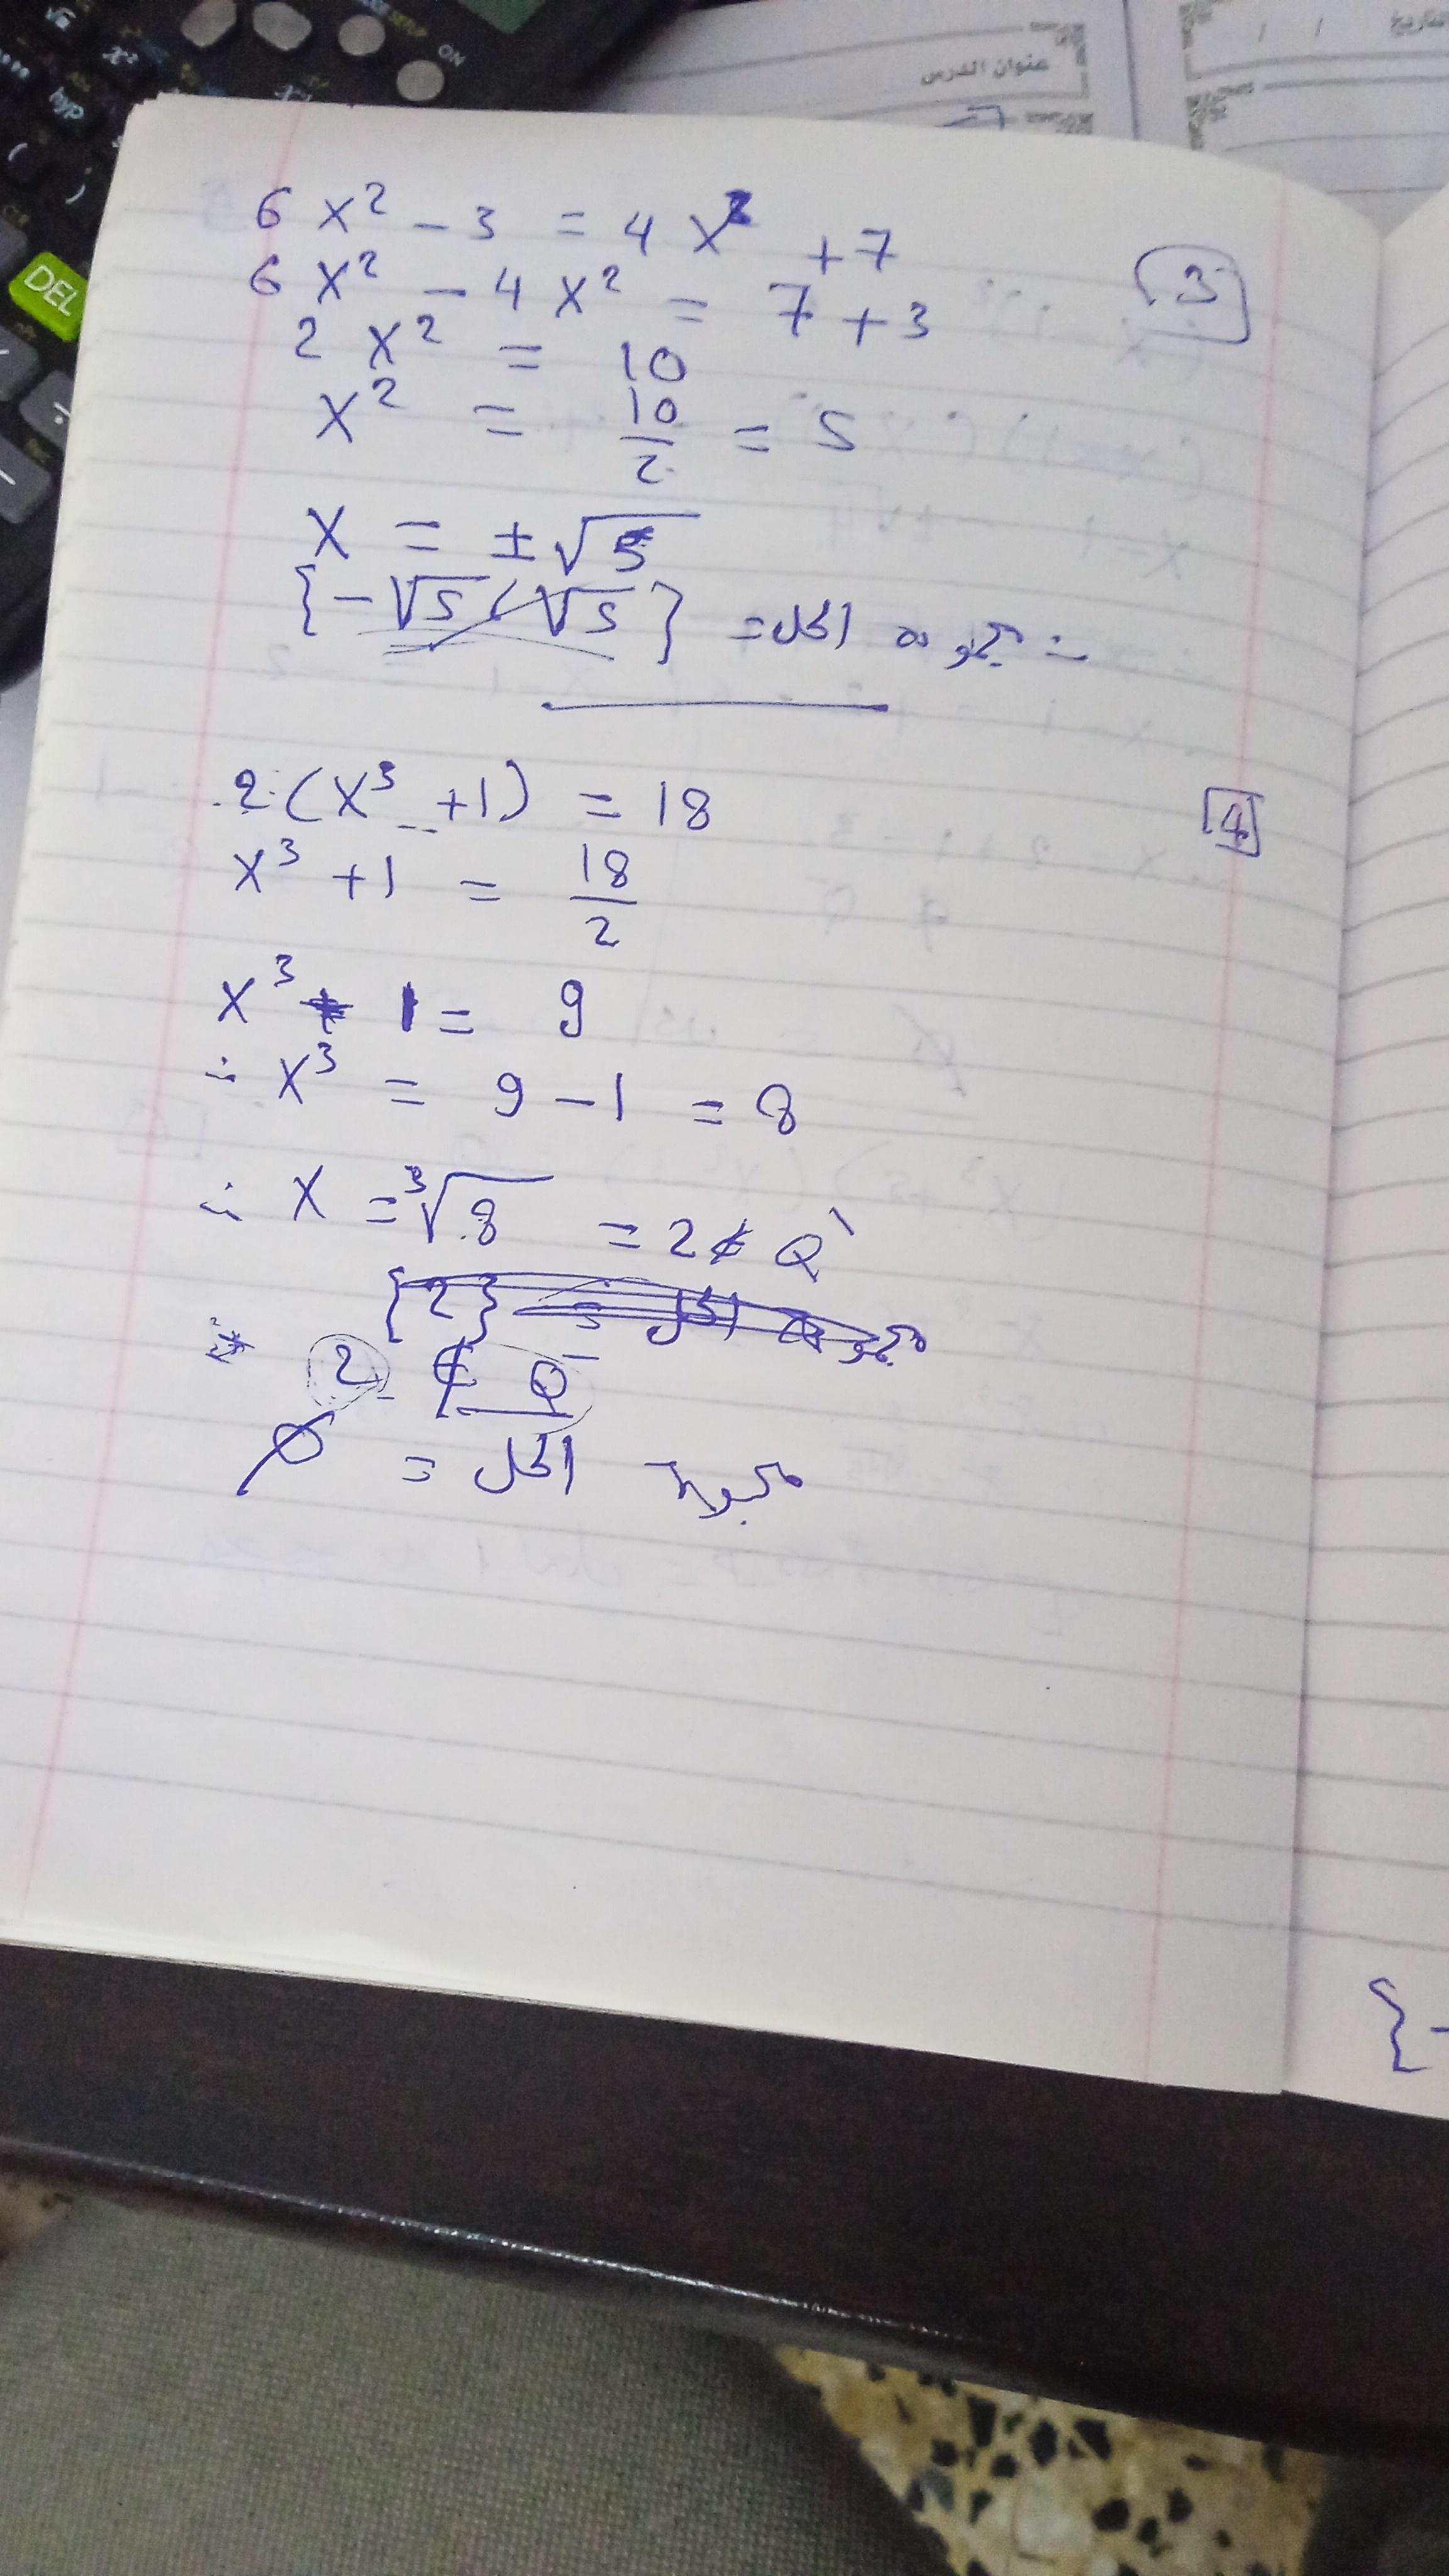 ON
hyp
DEL
عنوان الدرس
التاريخ / /
6 x² - 3 = 4 x² + 7
[3]
6 x² - 4 x² = 7 + 3
2 x² = 10
x² = 10/2 = 5
x = ±√5
∴ مجموعة الحل = {-√5, √5}
2 (x³ + 1) = 18
[4]
x³ + 1 = 18/2
x³ + 1 = 9
∴ x³ = 9 - 1 = 8
∴ x = ³√8 = 2 ∉ Q`
{2} = الحل
2 ∉ Q̅
مجموعة الحل = Ø
{-